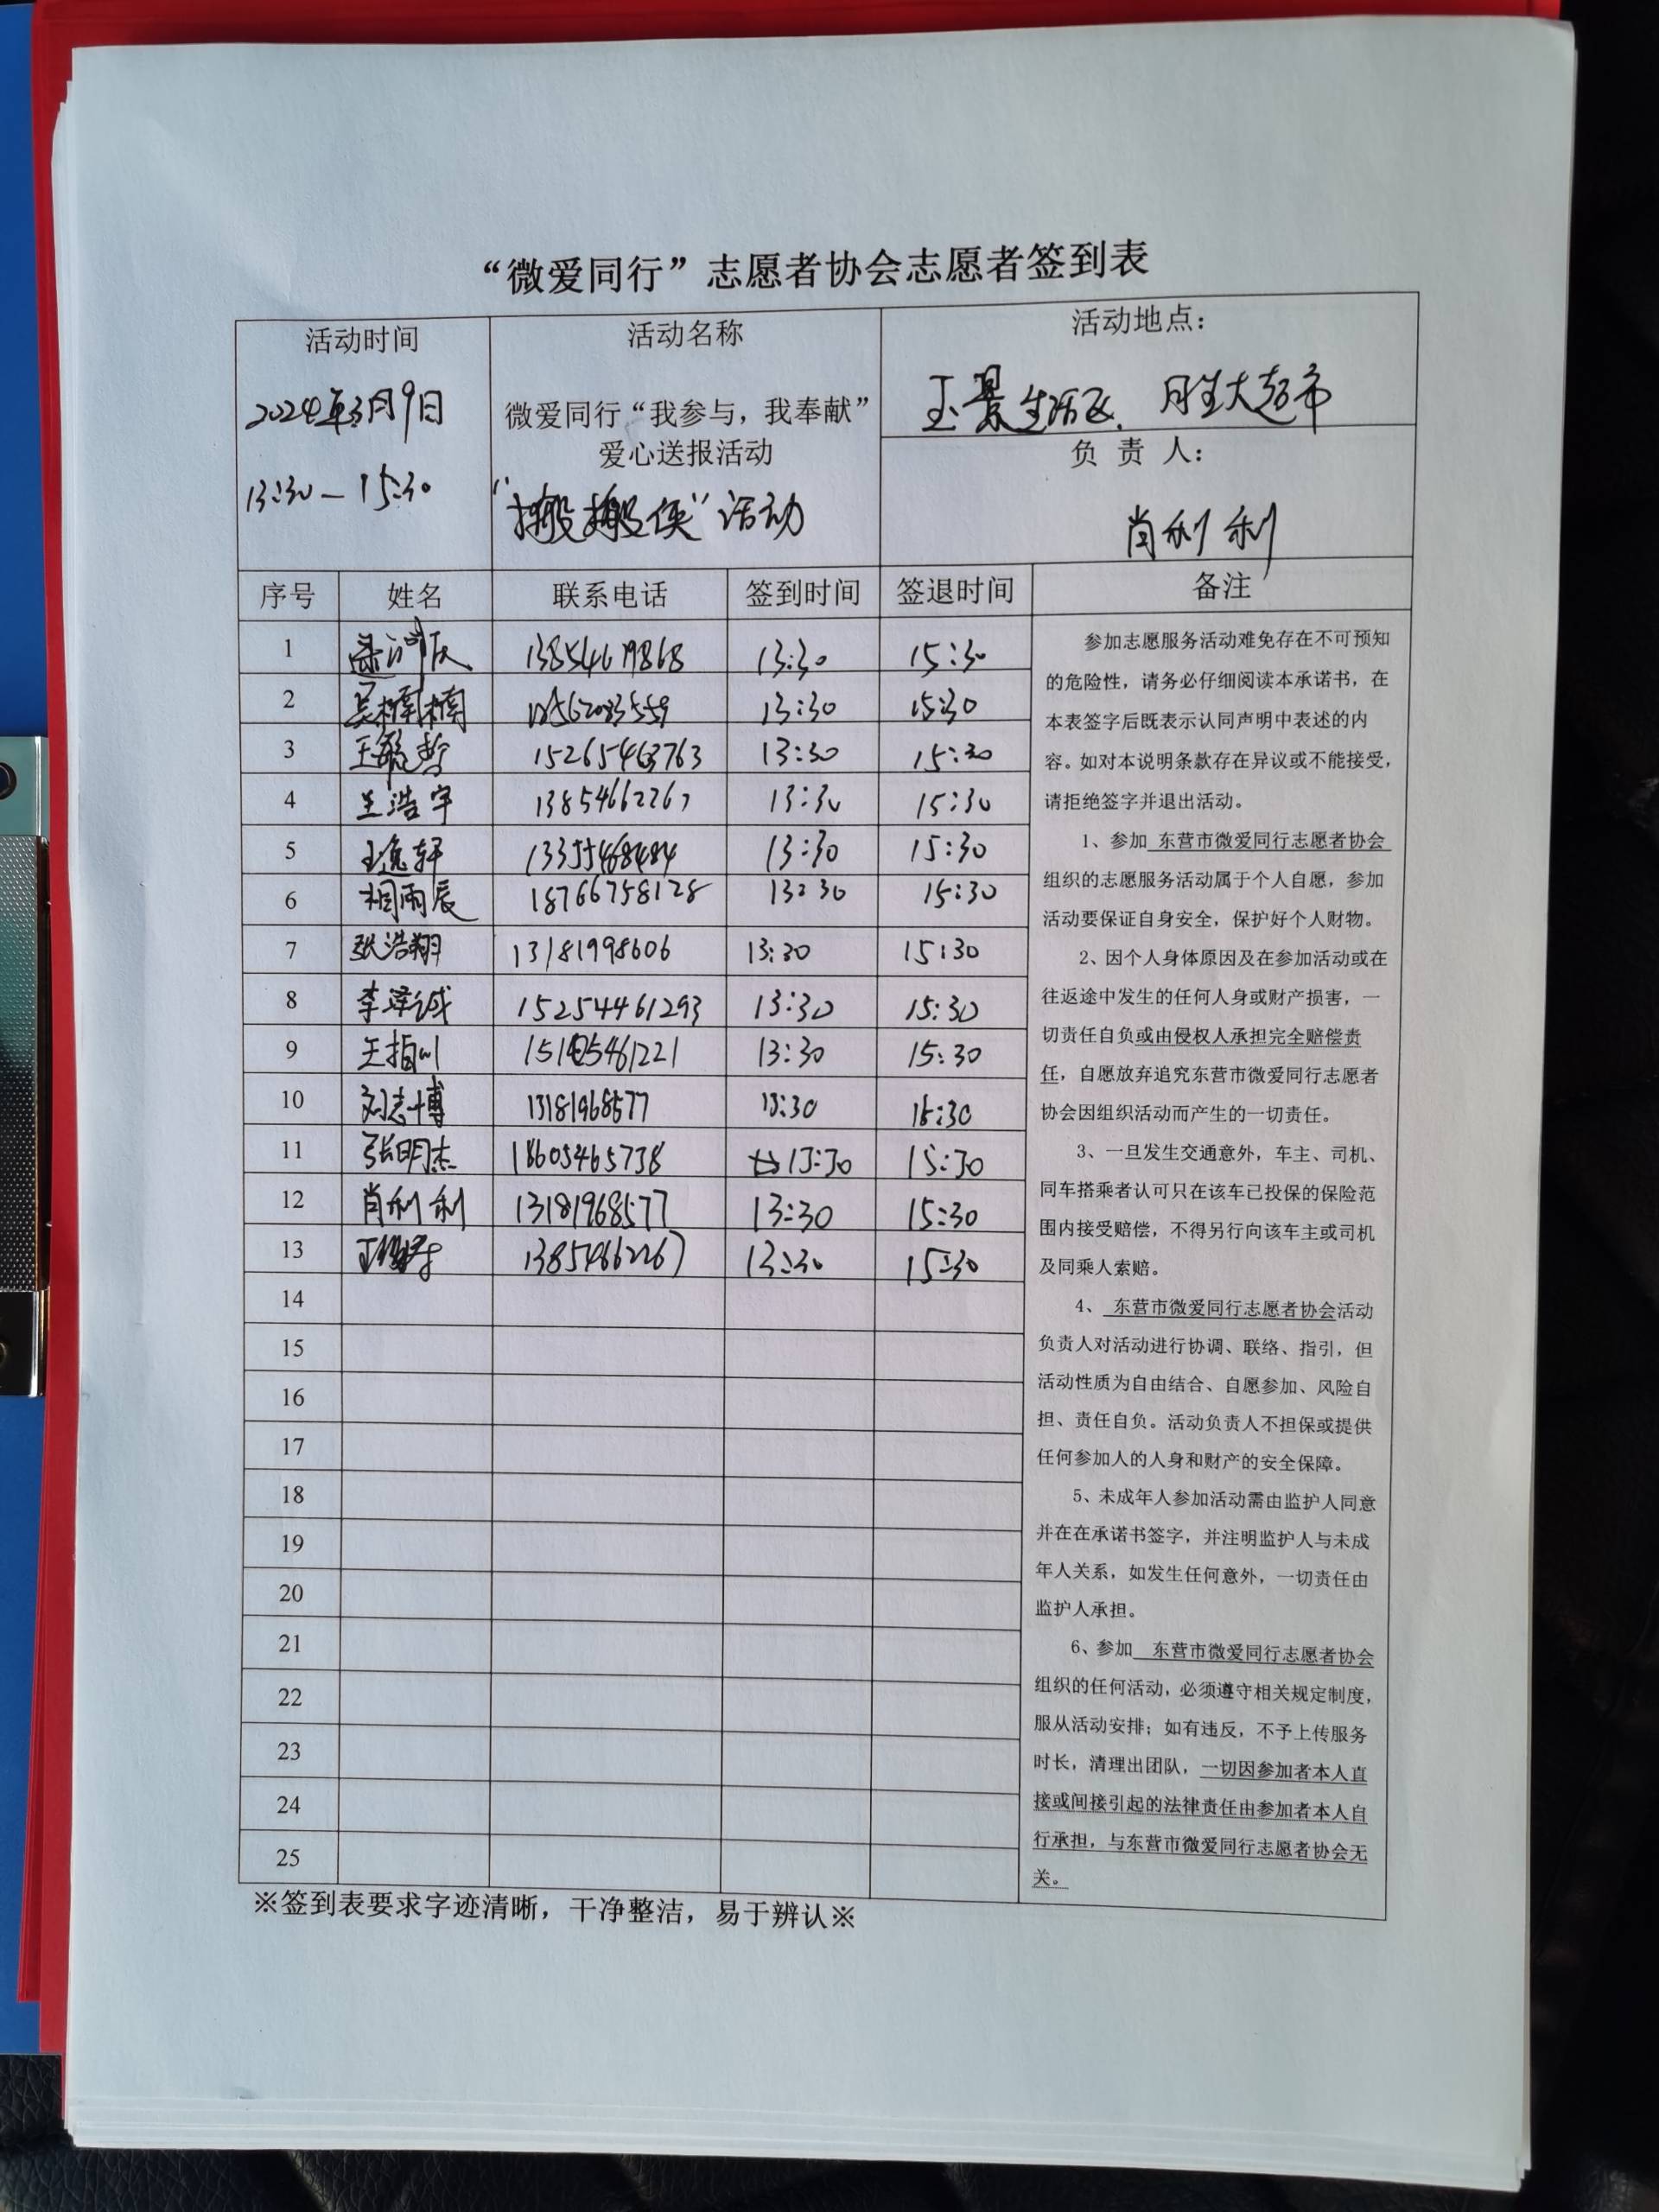 “微爱同行”志愿者协会志愿者签到表
活动时间
2024年3月9日
13:30—15:30
活动名称
微爱同行“我参与，我奉献”
爱心送报活动
“搬搬侠”活动
活动地点：
玉景生活区、胜大超市
负 责 人：
肖利利
序号 姓名 联系电话 签到时间 签退时间 备注
1 13854619868 13:30 15:30
2 吴楠楠 13:30 15:30
3 王 15265463763 13:30 15:30
4 王浩宇 13854662267 13:30 15:30
5 王逸轩 13355468484 13:30 15:30
6 相雨辰 18766758128 13:30 15:30
7 张浩翔 13181998606 13:30 15:30
8 李泽诚 15254461293 13:30 15:30
9 王 13:30 15:30
10 刘志博 13181968577 13:30 15:30
11 张明杰 18605465738 13:30 15:30
12 肖利利 13181968577 13:30 15:30
13 13854662267 13:30 15:30
14
15
16
17
18
19
20
21
22
23
24
25
参加志愿服务活动难免存在不可预知
的危险性，请务必仔细阅读本承诺书，在
本表签字后既表示认同声明中表述的内
容。如对本说明条款存在异议或不能接受，
请拒绝签字并退出活动。
1、参加 东营市微爱同行志愿者协会
组织的志愿服务活动属于个人自愿，参加
活动要保证自身安全，保护好个人财物。
2、因个人身体原因及在参加活动或在
往返途中发生的任何人身或财产损害，一
切责任自负或由侵权人承担完全赔偿责
任，自愿放弃追究东营市微爱同行志愿者
协会因组织活动而产生的一切责任。
3、一旦发生交通意外，车主、司机、
同车搭乘者认可只在该车已投保的保险范
围内接受赔偿，不得另行向该车主或司机
及同乘人索赔。
4、 东营市微爱同行志愿者协会活动
负责人对活动进行协调、联络、指引，但
活动性质为自由结合、自愿参加、风险自
担、责任自负。活动负责人不担保或提供
任何参加人的人身和财产的安全保障。
5、未成年人参加活动需由监护人同意
并在在承诺书签字，并注明监护人与未成
年人关系，如发生任何意外，一切责任由
监护人承担。
6、参加 东营市微爱同行志愿者协会
组织的任何活动，必须遵守相关规定制度，
服从活动安排；如有违反，不予上传服务
时长，清理出团队，一切因参加者本人直
接或间接引起的法律责任由参加者本人自
行承担，与东营市微爱同行志愿者协会无
关。
※签到表要求字迹清晰，干净整洁，易于辨认※